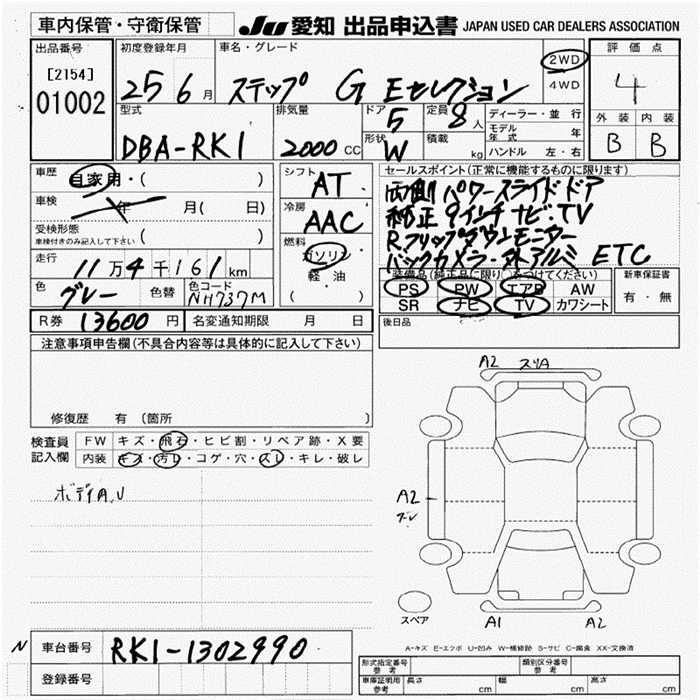 車内保管・守衛保管 JU 愛知 出品申込書 JAPAN USED CAR DEALERS ASSOCIATION
出品番号 初度登録年月 車名・グレード 2WD 4WD 評価点
[2154] 01002 25 6月 ステップ G Eセレクション 4
型式 排気量 ドア 5 定員 8人 ディーラー・並行 外装 内装
モデル年式 年
DBA-RK1 2000CC 形状 W 積載 kg ハンドル 左・右 B B
車歴 自家用・( ) シフト AT セールスポイント(正常に機能するものに限ります)
車検 年 月( 日) 冷房 AAC 両側パワースライドドア
純正9インチナビ・TV
受検形態 車検付きのみ記入して下さい ( ) 燃料 ガソリン Rフリップダウンモニター
走行 11万4千161km 軽・油 バックカメラ・アルミ ETC
( ) 装備品(純正品に限り○をつけてください) 新車保証書
色 グレー 色替 色コード NH737M PS PW エアB AW 有・無
SR ナビ TV カワシート
R券 13600円 名変通知期限 月 日 後日品
注意事項申告欄(不具合内容等は具体的に記入して下さい)
修復歴 有 (箇所 )
検査員記入欄 FW キズ・飛石・ヒビ割・リペア跡・X要
内装 キズ・汚レ・コゲ・穴・スレ・キレ・破レ
ボディA,U
A2 スリA
A2
スペア A1 A2
A-キズ E-エクボ U-凹み W-補修跡 S-サビ C-腐食 XX-交換済
N 車台番号 RK1-1302990
登録番号
型式指定番号 参考 類別区分番号 参考
車庫証明用 参考 長さ cm 幅 cm 高さ cm